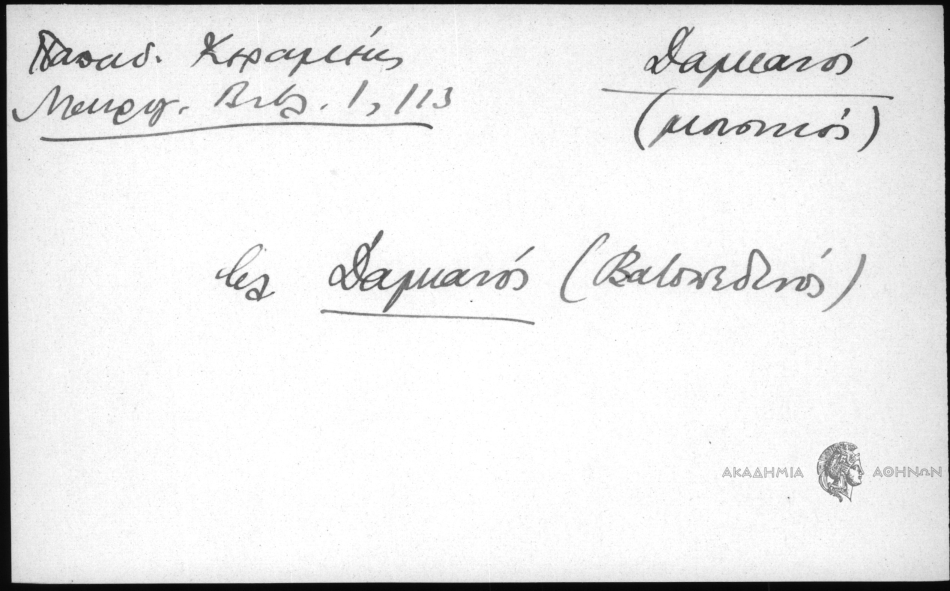 Παπαδ. Κεραμεύς
Μαυρογ. Βιβλ. 1, 113
Δαμιανός
(μουσικός)
βλ Δαμιανός (Βατοπεδινός)
ΑΚΑΔΗΜΙΑ ΑΘΗΝΩΝ